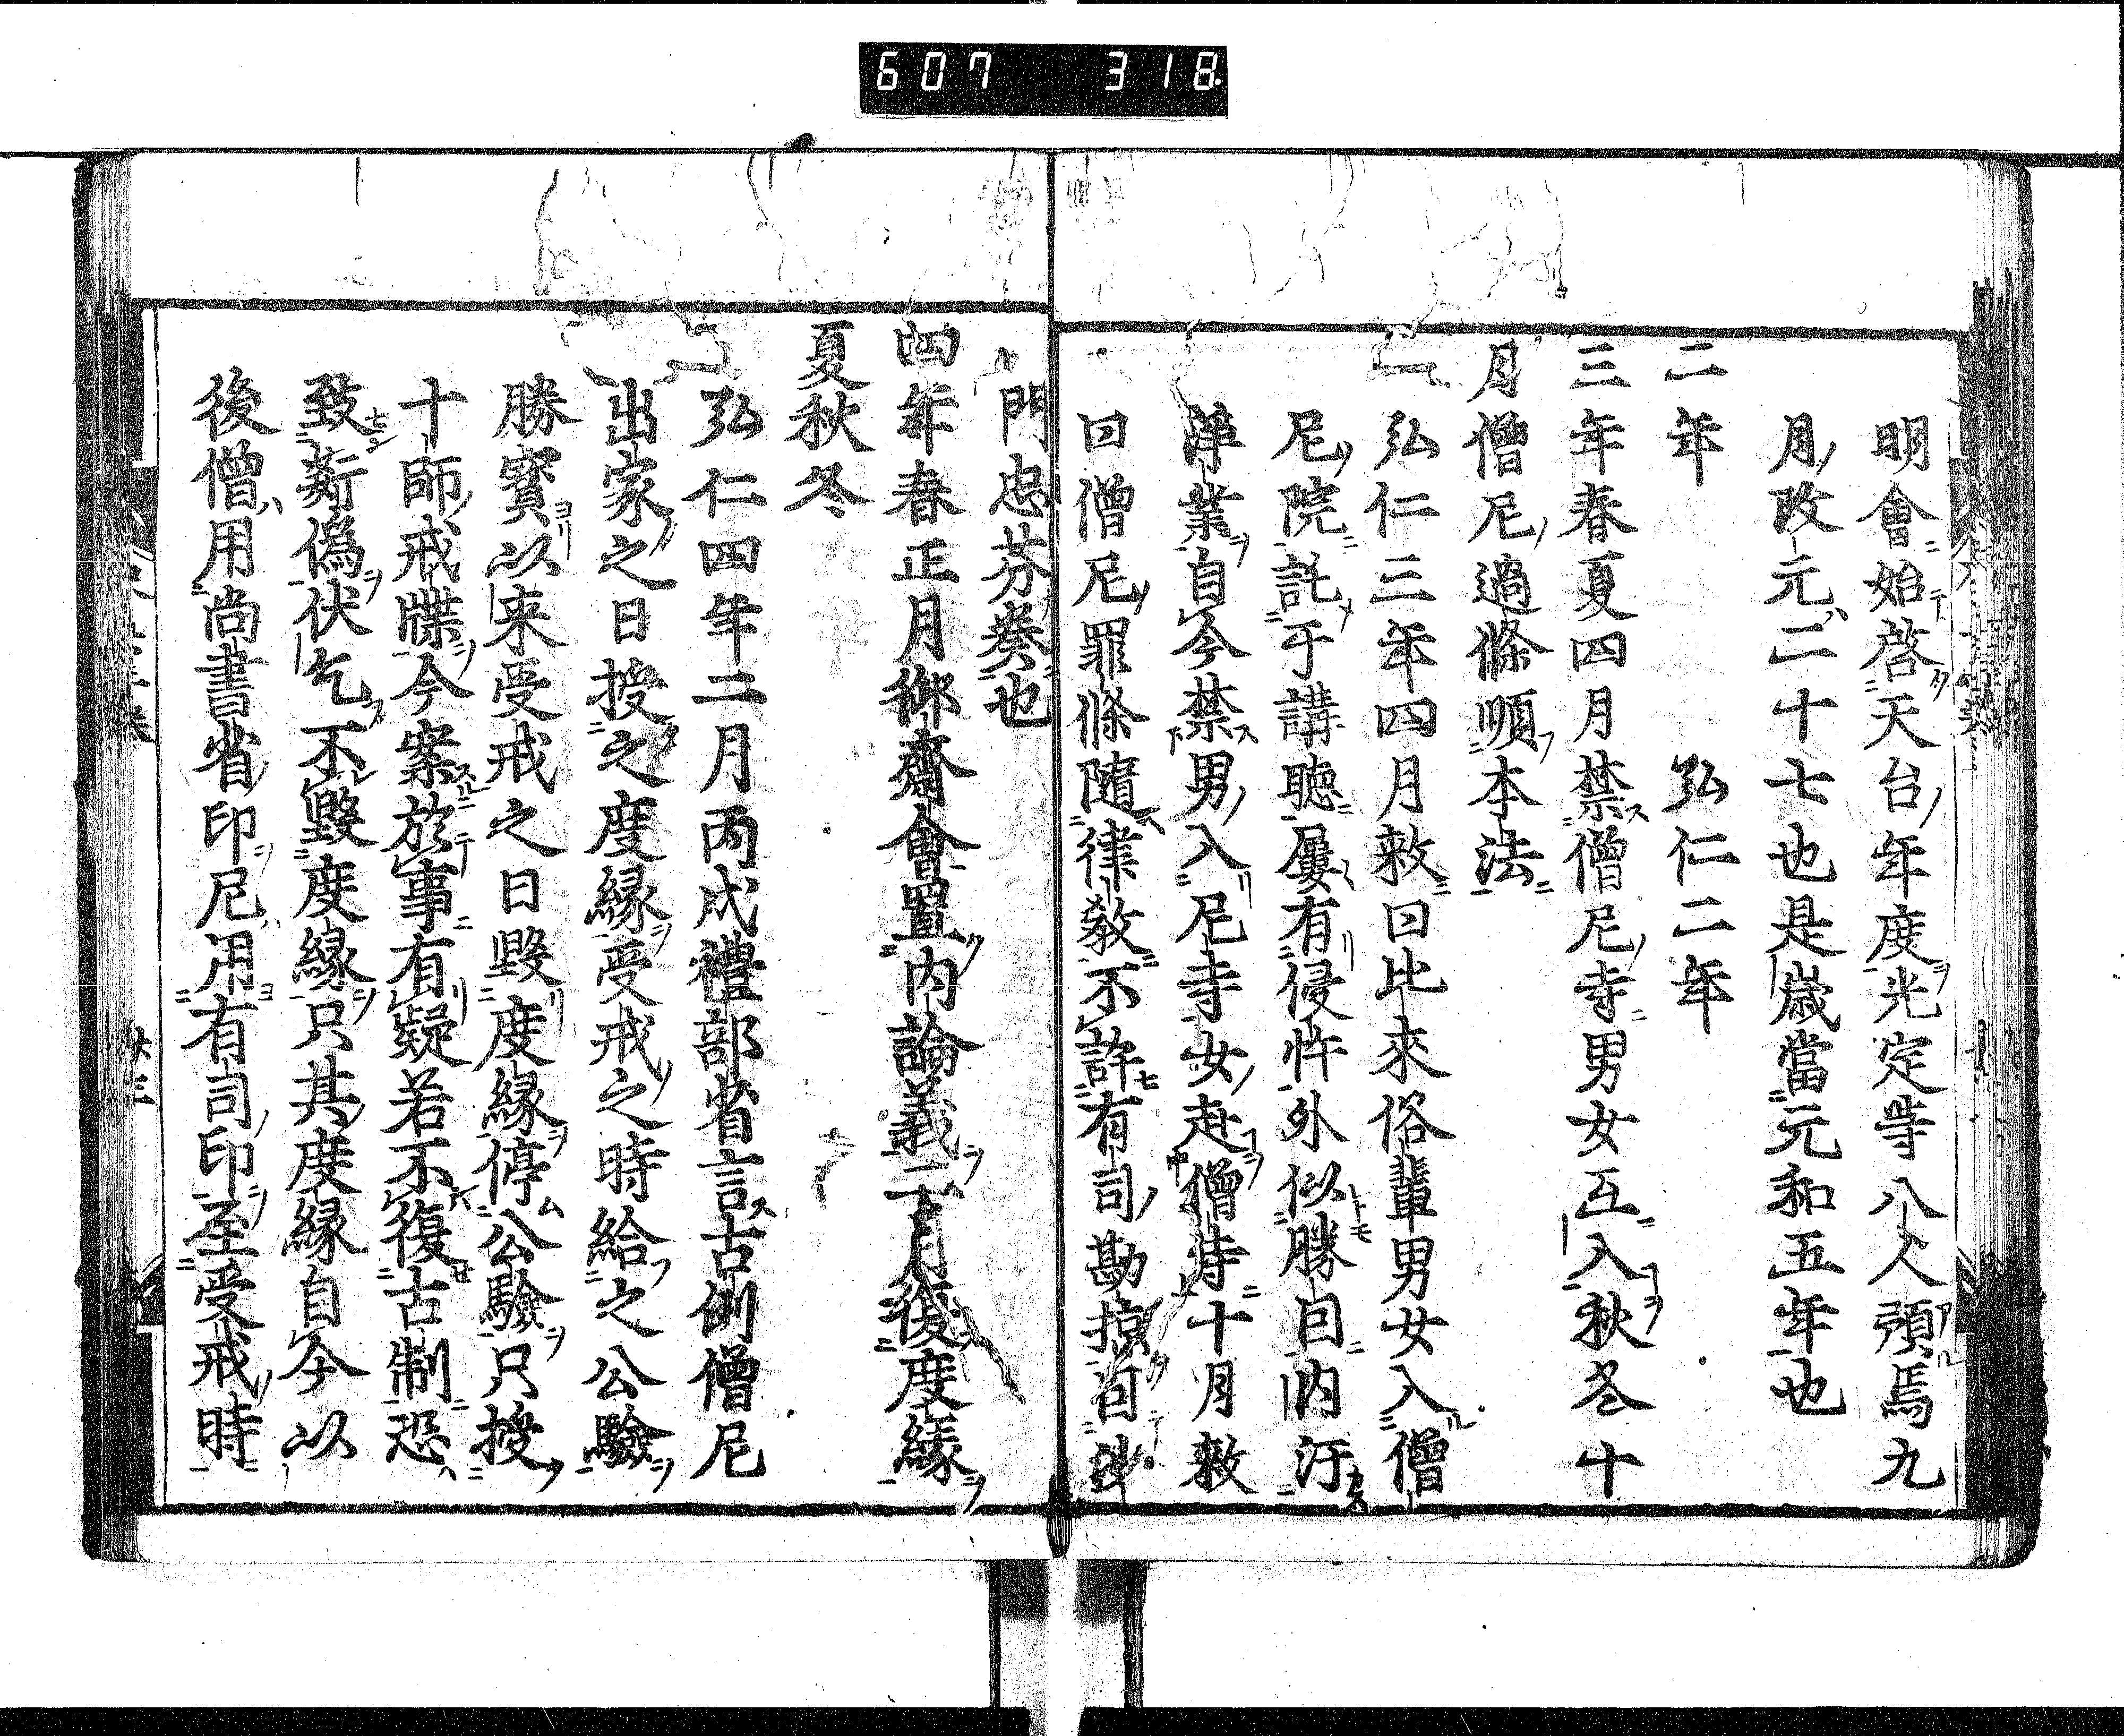 607 318
明會始啓天台年度光定等八人預焉九
月改元二十七也是歳當元和五年也
二年 弘仁二年
三年春夏四月禁僧尼寺男女互入秋冬十
月僧尼過條順本法
弘仁三年四月敕曰比來俗輩男女入僧
尼院託于講聴屢有侵忤外似勝因内汙
淨業自今禁男入尼寺女赴僧寺十月敕
曰僧尼罪條隨律教不許有司勘掠
門忠芬癸也
四年春正月御齋會置内論義二月復度縁
夏秋冬
弘仁四年二月丙戌禮部省言古例僧尼
出家之日授之度縁受戒之時給之公驗
勝寳以来受戒之日毀度縁停公驗只授
十師戒牒今案於事有疑若不復古制恐
致姧偽伏乞不毀度縁只其度縁自今以
後僧用尚書省印尼用有司印至受戒時